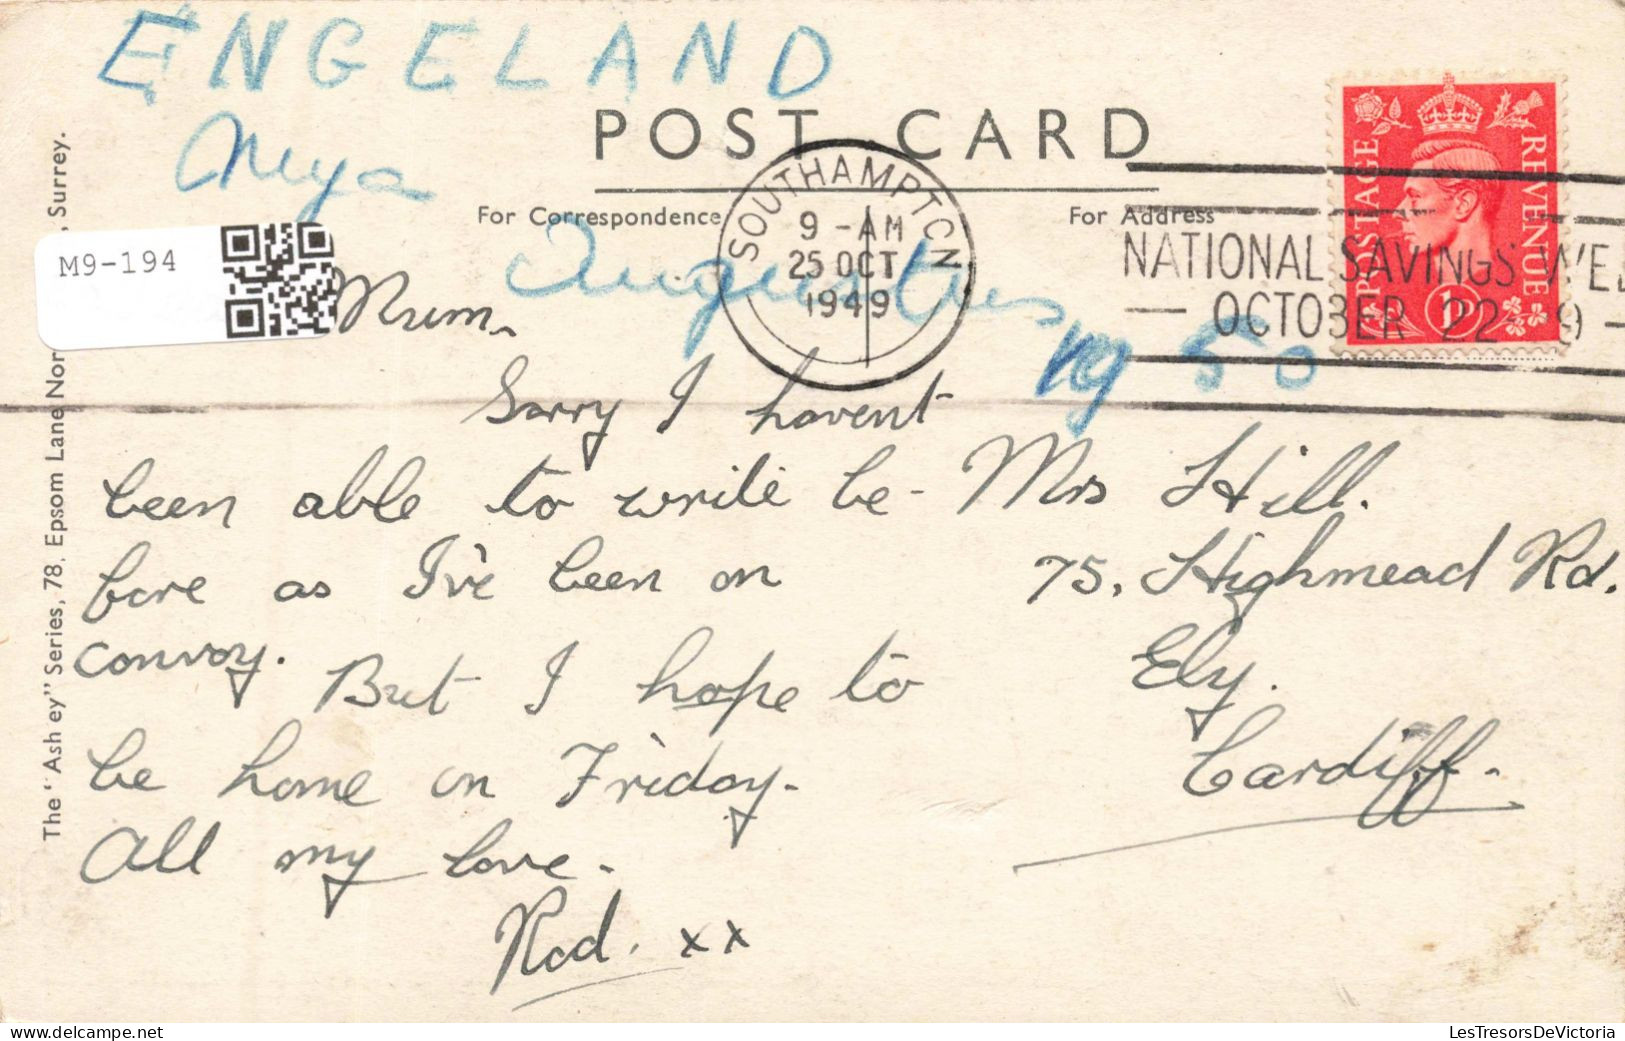 ENGELAND
POST CARD
For Correspondence
For Address
SOUTHAMPTON
9 - AM
25 OCT
1949
NATIONAL SAVINGS WEE
— OCTOBER 22 - 9 —
POSTAGE
REVENUE
1D
M9-194
Augustus
1950
Mum,
Sorry I havent
been able to write be-
fore as I've been on
convoy.
But I hope to
be home on Friday.
All my love.
Rod. xx
Mrs Hill.
75, Highmead Rd.
Ely.
Cardiff.
The "Ash ey" Series, 78, Epsom Lane Nor , Surrey.
LesTresorsDeVictoria